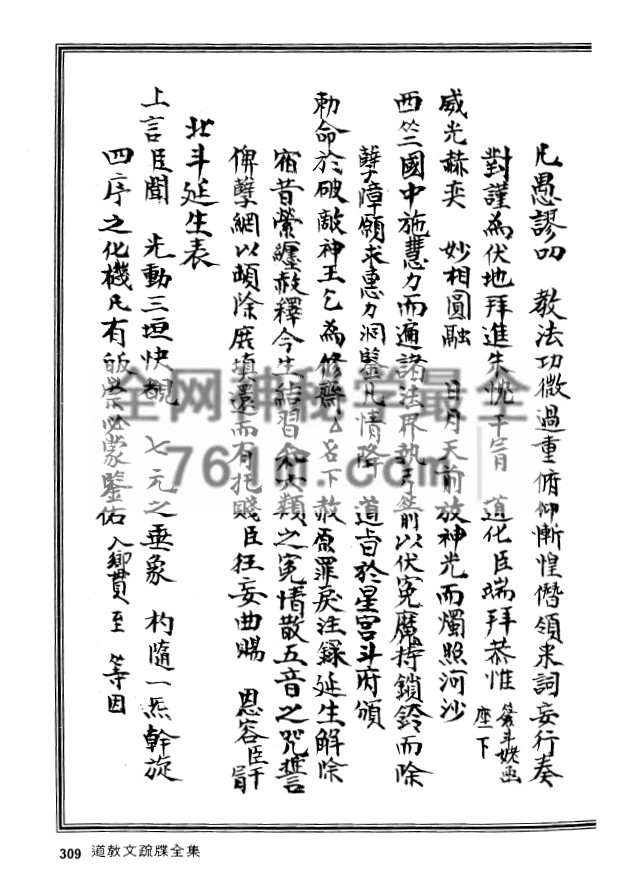 凡愚謬叨　教法功微過重俯仰慚惶僭領来詞妄行奏
對謹為伏地拜進朱悃干冒　道化臣端拜恭惟　簽斗姥函座下
威光赫奕　妙相圓融　日月天前放神光而燭照河沙
西竺國中施慧力而遍諸法界執弓箭以伏冤魔持鎖鈴而除
孽障願求惠力洞鑒凡情降　道旨於星宮斗府頒
勅命於破敵神王乞為修齋厶名下赦原罪戾注録延生解除
宿昔縈纏赦釋今生結習和六類之冤情散五音之咒誓
俾孽網以頓除庶填還而有托賤臣狂妄曲賜　恩容臣干冒
北斗延生表
上言臣聞　光動三垣快覩　七元之垂象　杓隨一炁斡旋
四序之化機凡有皈崇必蒙鑒佑　入鄉貫至　等因
全网神秘学最全
761n.com
309 道教文疏牒全集